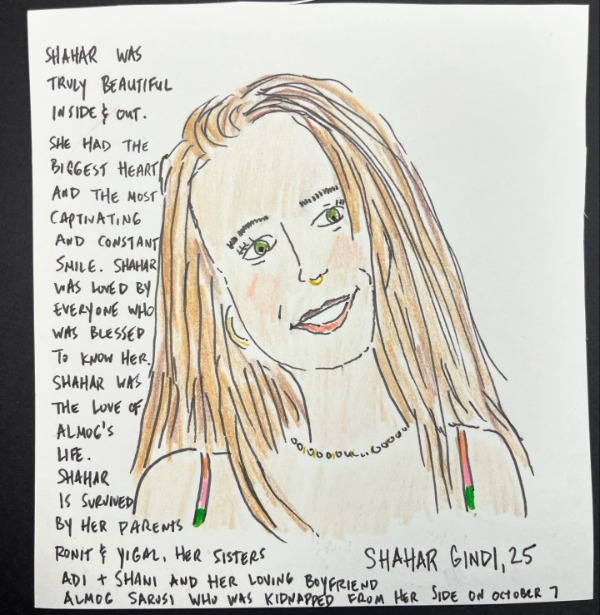 SHAHAR WAS
TRULY BEAUTIFUL
INSIDE & OUT.
SHE HAD THE
BIGGEST HEART
AND THE MOST
CAPTIVATING
AND CONSTANT
SMILE. SHAHAR
WAS LOVED BY
EVERYONE WHO
WAS BLESSED
TO KNOW HER.
SHAHAR WAS
THE LOVE OF
ALMOG'S
LIFE.
SHAHAR
IS SURVIVED
BY HER PARENTS
RONIT & YIGAL, HER SISTERS
ADI + SHANI AND HER LOVING BOYFRIEND
ALMOG SARUSI WHO WAS KIDNAPPED FROM HER SIDE ON OCTOBER 7
SHAHAR GINDI, 25